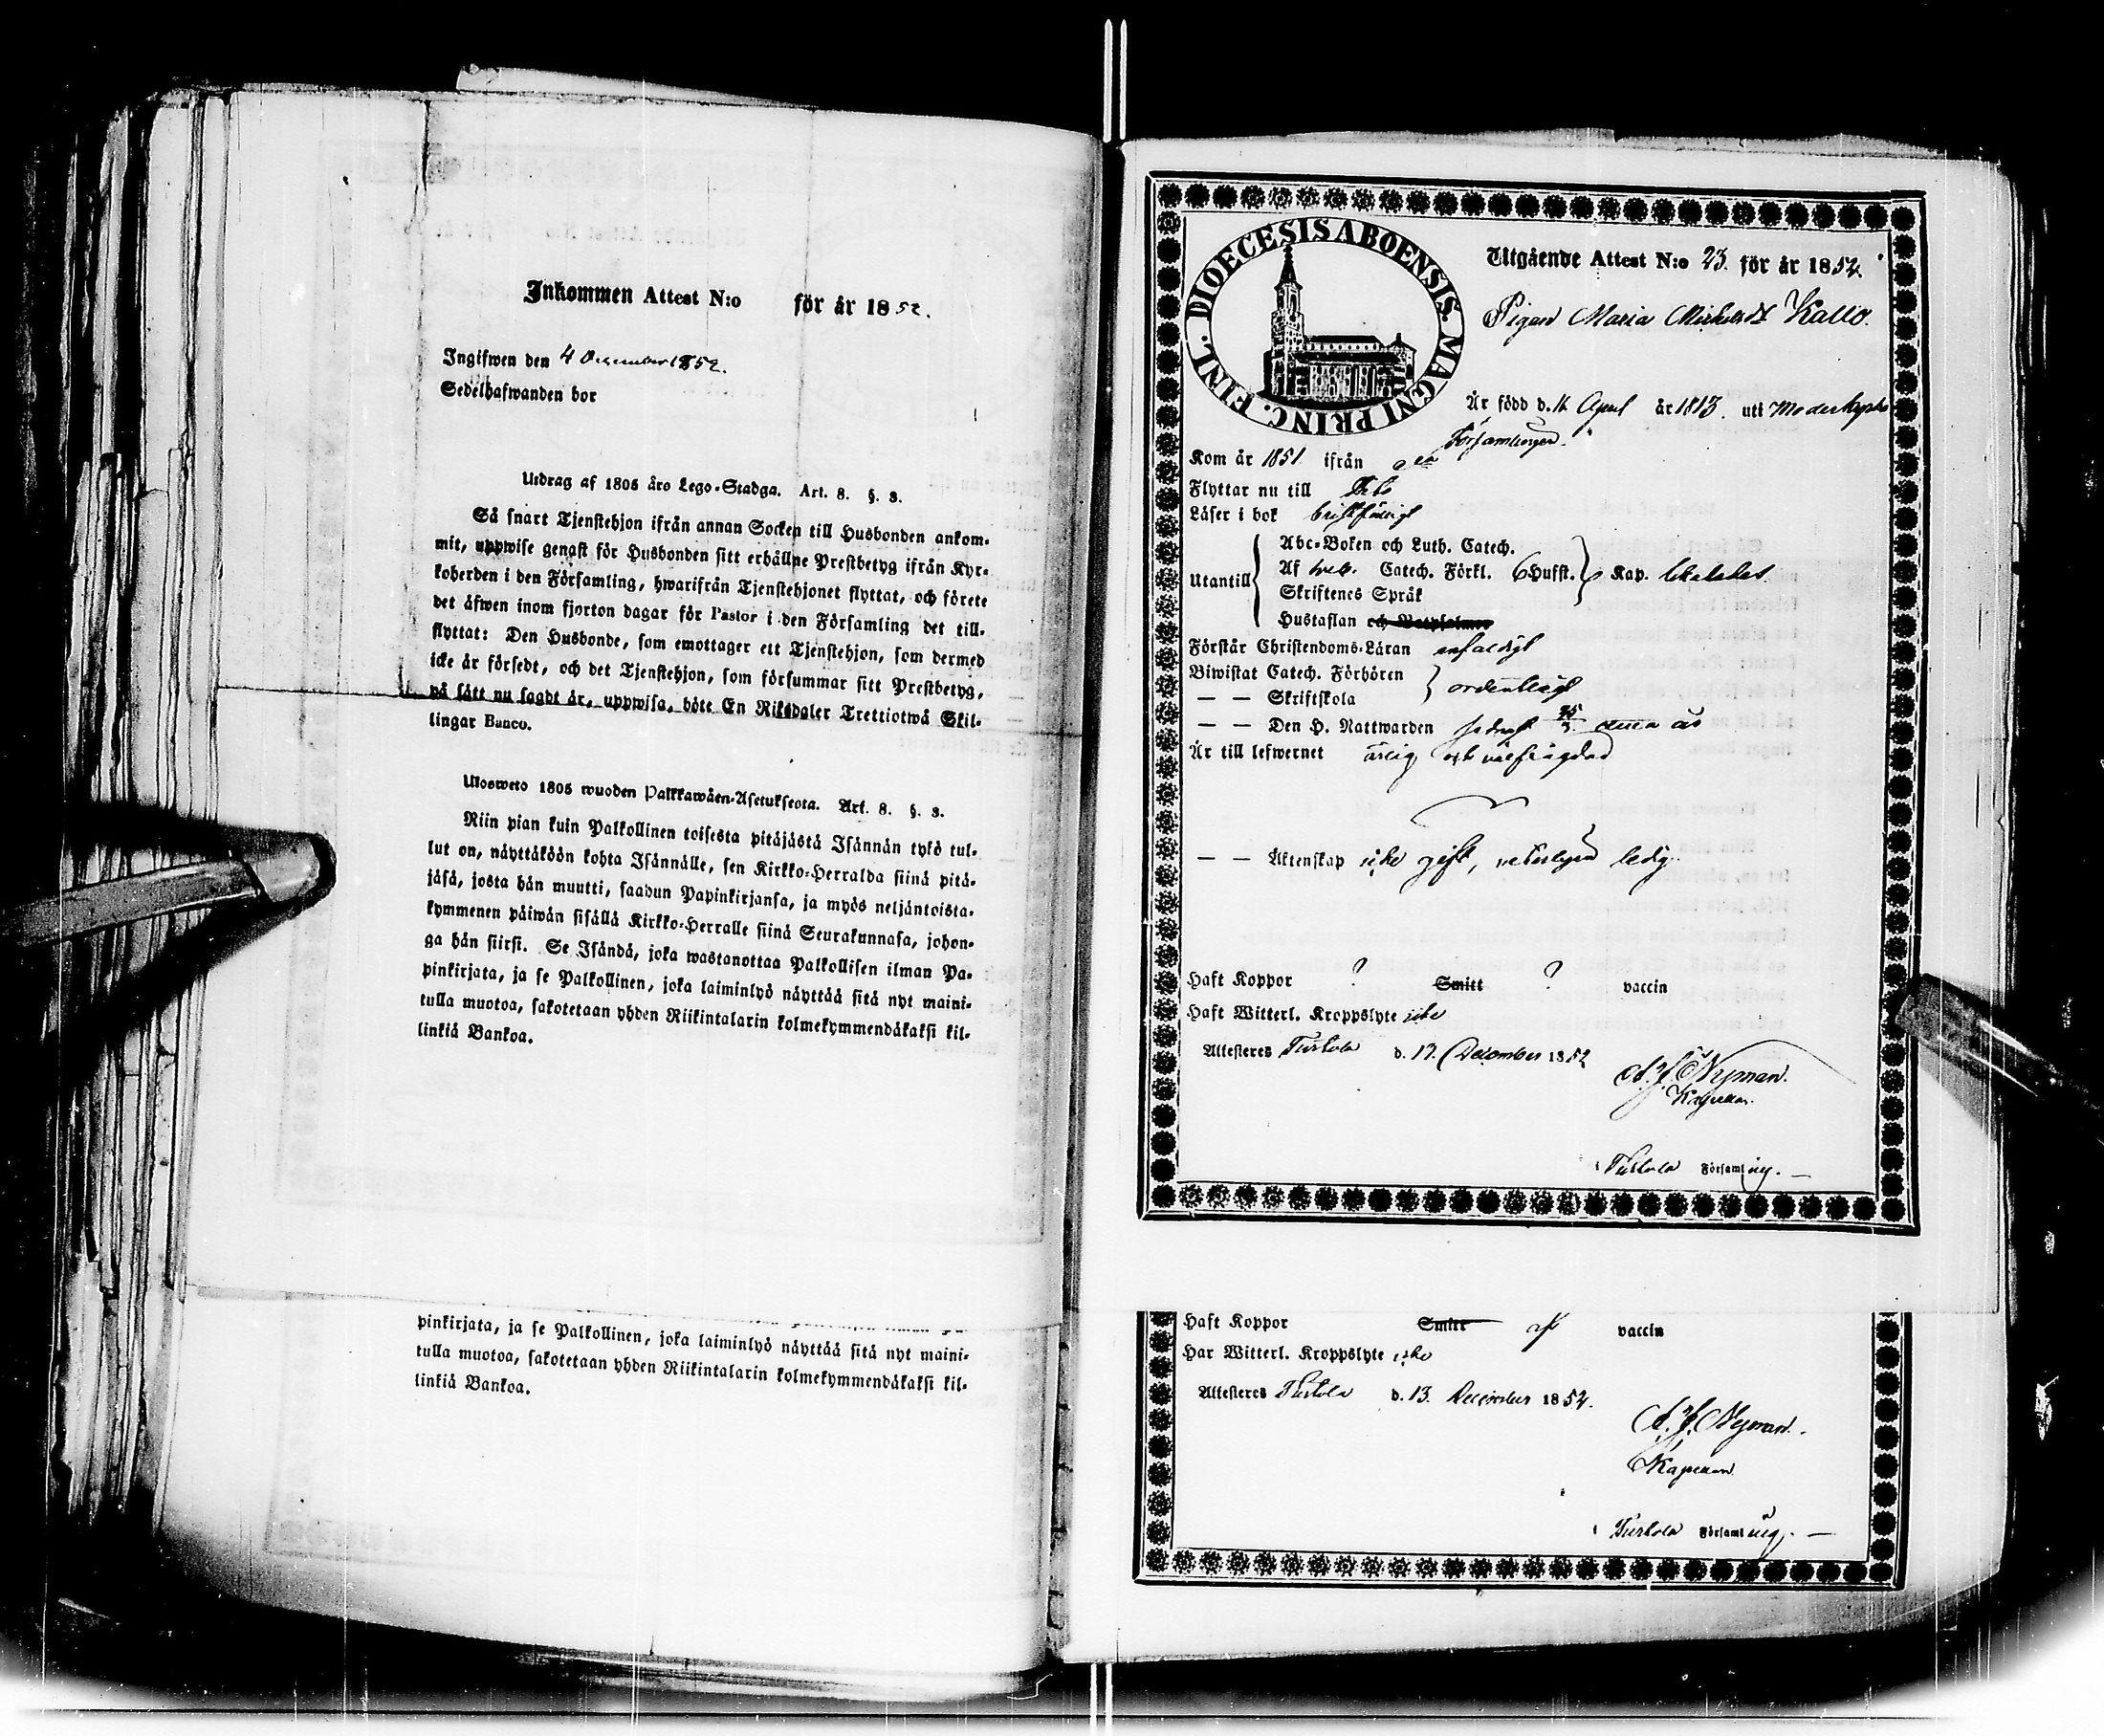 Inkommen Attest N:o för år 1852.
Ingifwen den 4 December 1852.
Sedelhafwanden bor
Utdrag af 1805 åro Lego-Stadga. Art. 8. §. 3.
Så snart Tjenstehjon ifrån annan Socken till Husbonden ankom-
mit, uppwise genast för Husbonden sitt erhållne Prestbetyg ifrån Kyr-
koherden i den Församling, hwarifrån Tjenstehjonet flyttat, och förete
det äfwen inom fjorton dagar för Pastor i den Församling det till-
flyttat: Den Husbonde, som emottager ett Tjenstehjon, som dermed
icke är försedt, och det Tjenstehjon, som försummar sitt Prestbetyg,
på sätt nu sagdt är, uppwisa, böte En Riksdaler Trettiotwå Skil-
lingar Banco.
Ulosweto 1805 wuoden Palkkawäen-Asetuksesta. Art. 8. §. 3.
Niin pian kuin Palkollinen toisesta pitäjästä Isännän tykö tul-
lut on, näyttäköön kohta Isännälle, sen Kirkko-Herralda siinä pitä-
jäsä, josta hän muutti, saadun Papinkirjansa, ja myös neljäntoista-
kymmenen päiwän sisällä Kirkko-Herralle siinä Seurakunnasa, johon-
ga hän siirsi. Se Isändä, joka wastanottaa Palkollisen ilman Pa-
pinkirjata, ja se Palkollinen, joka laiminlyö näyttää sitä nyt maini-
tulla muotoa, sakotetaan yhden Riikintalarin kolmekymmendäkaksi kil-
linkiä Bankoa.
pinkirjata, ja se Palkollinen, joka laiminlyö näyttää sitä nyt maini-
tulla muotoa, sakotetaan yhden Riikintalarin kolmekymmendäkaksi kil-
linkiä Bankoa.
FINL. DIOECESIS ABOENSIS. MAGNI PRINC.
Utgående Attest N:o 23. för år 1852.
Pigan Maria Michelsdr Kallo.
Är född d. April år 1813. uti Moderkyrko
Församlingen.
Kom år 1851 ifrån
Flyttar nu till Åbo
Läser i bok bristfälligt
Abc-Boken och Luth. Catech.
Utantill Af Catech. Förkl. 6 Hufst. Kap.
Skriftenes Språk
Hustaflan och Botpsalmer
Förstår Christendoms-Läran enfaldigt
Biwistat Catech. Förhören
— — Skriftskola ordentligt
— — Den H. Nattwarden sednast denna år
Är till lefwernet ärlig och välfrägdad
— — Äktenskap icke gift, ledig.
Haft Koppor ? Smitt ? vaccin
Haft Witterl. Kroppslyte icke
Attesteres Tuskola d. 13. December 1852
Nyman.
Kapellan.
Församling.
Haft Koppor Smitt vaccin
Har Witterl. Kroppslyte icke
Attesteres d. 13. December 1852.
Nyman.
Kapellan
Församling.